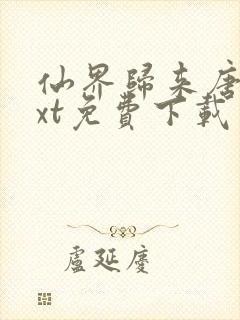 仙界歸来唐
xt免費下載
盧延慶